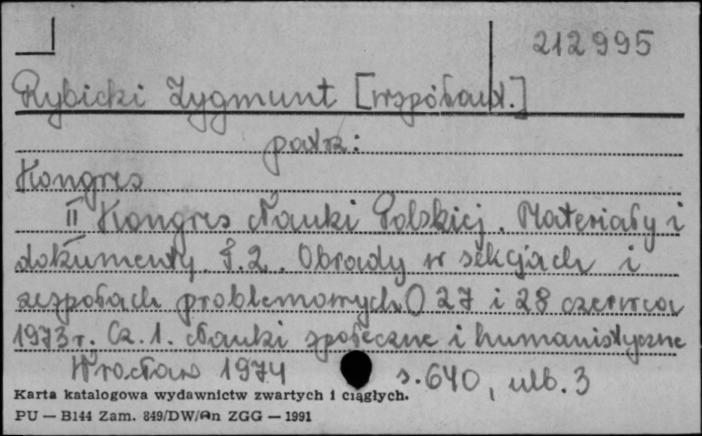 212995
Rybicki Zygmunt [współaut.]
patrz:
Kongres
II Kongres Nauki Polskiej. Materiały i
dokumenty. T.2. Obrady w sekcjach i
zespołach problemowych 27 i 28 czerwca
1973 r. Cz. 1. Nauki społeczne i humanistyczne
Wrocław 1974 s. 640, ulb. 3
Karta katalogowa wydawnictw zwartych i ciągłych.
PU — B144 Zam. 849/DW/An ZGG — 1991